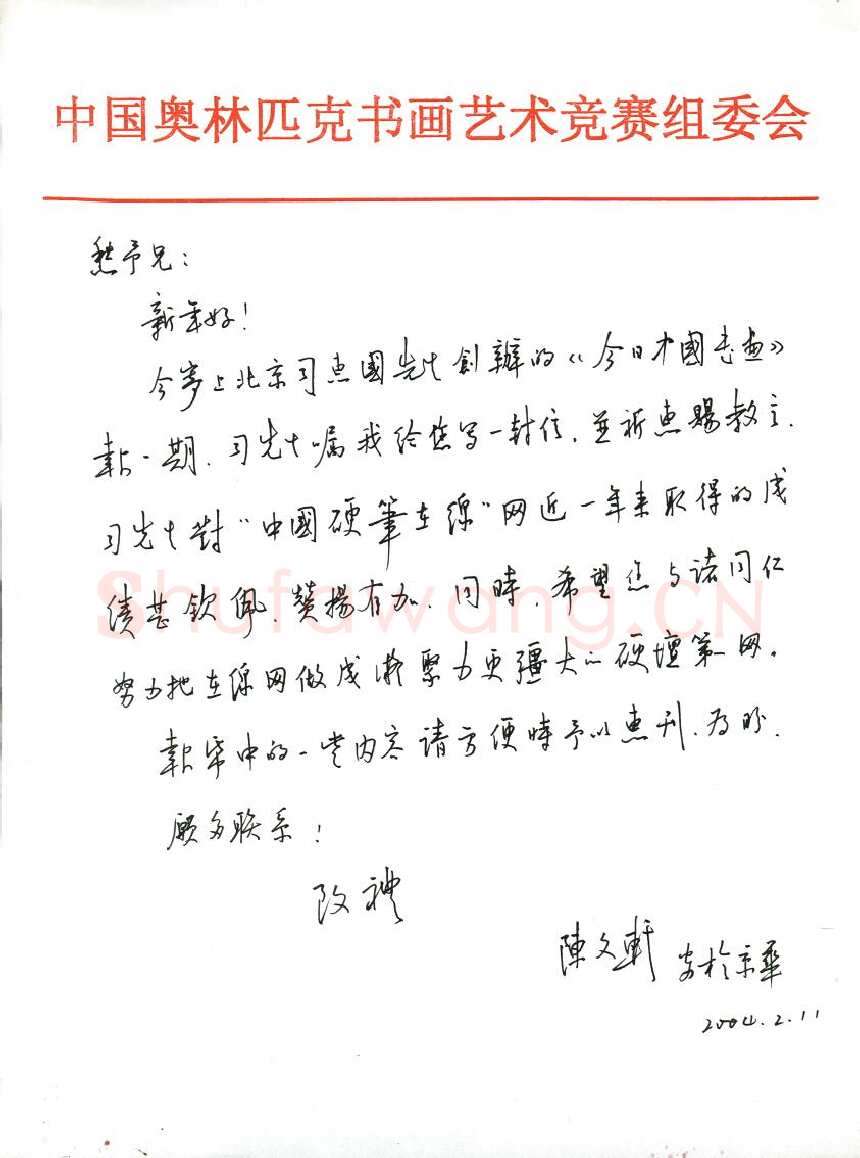 中国奥林匹克书画艺术竞赛组委会
愁予兄：
新年好！
今寄上北京习惠國先生創辦的《今日中國書画》
報一期，习先生嘱我给您写一封信，並祈惠賜教言。
习先生對“中國硬筆在線”网近一年来取得的成
绩甚钦佩，贊揚有加。同時，希望您与诸同仁
努力把在線网做成凝聚力更疆大的硬壇第一网。
報纸中的一些内容请方便時予以惠刊，为盼。
願多联系！
致禮
陳文軒 于京華
2004.2.11
Shufawang.CN